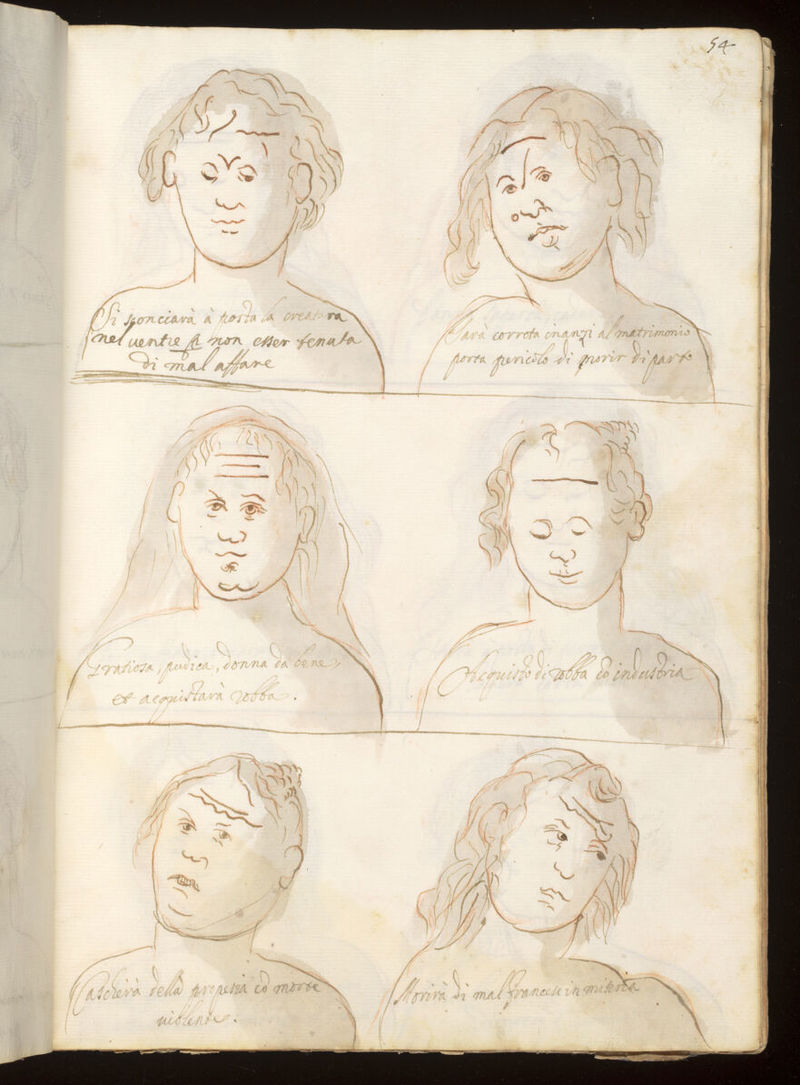 54
Si sconciarà à posta la creatura
nel ventre p non esser tenuta
di mal affare
Sarà corrota inanzi al matrimonio
porta pericolo di morir di parto
Gratiosa, pudica, donna da bene,
et acquistarà robba.
Acquisto di robba co industria
Cascherà della propesia co morte
violente.
Morirà di mal francese in miseria